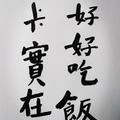 好好吃飯
卡實在